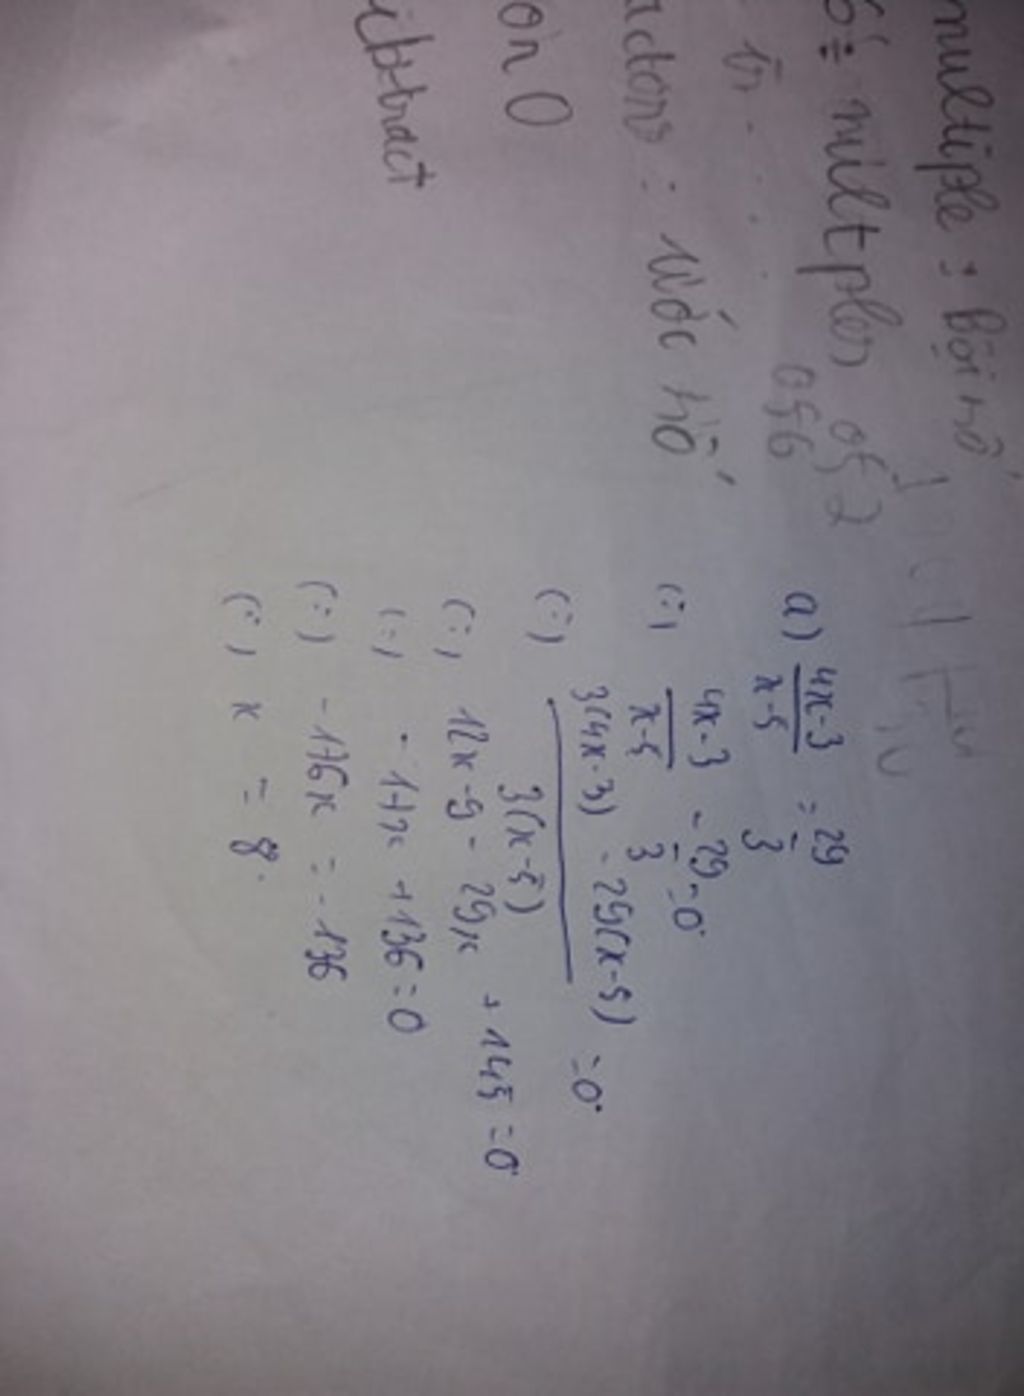 multiple : Bội số
6 = multples of 2
in ... of 6
actors : ước số
on 0
ubtract
a) \frac{4x-3}{x-5} = \frac{29}{3}
(=) \frac{4x-3}{x-5} - \frac{29}{3} = 0
(=) \frac{3(4x-3) - 29(x-5)}{3(x-5)} = 0
(=) 12x - 9 - 29x + 145 = 0
(=) - 17x + 136 = 0
(=) - 176x = - 136
(=) x = 8.